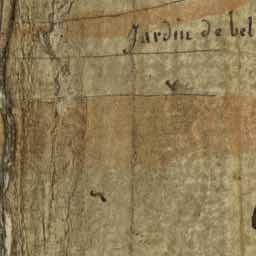 Jardin de bel